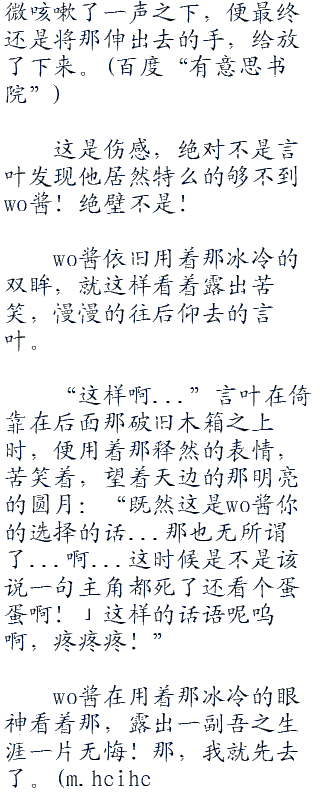 微咳嗽了一声之下，便最终
还是将那伸出去的手，给放
了下来。(百度“有意思书
院”)
这是伤感，绝对不是言
叶发现他居然特么的够不到
wo酱！绝壁不是！
wo酱依旧用着那冰冷的
双眸，就这样看着露出苦
笑，慢慢的往后仰去的言
叶。
“这样啊...”言叶在倚
靠在后面那破旧木箱之上
时，便用着那释然的表情，
苦笑着，望着天边的那明亮
的圆月：“既然这是wo酱你
的选择的话...那也无所谓
了...啊...这时候是不是该
说一句主角都死了还看个蛋
蛋啊！」这样的话语呢呜
啊，疼疼疼！”
wo酱在用着那冰冷的眼
神看着那，露出一副吾之生
涯一片无悔！那，我就先去
了。(m.hcihc